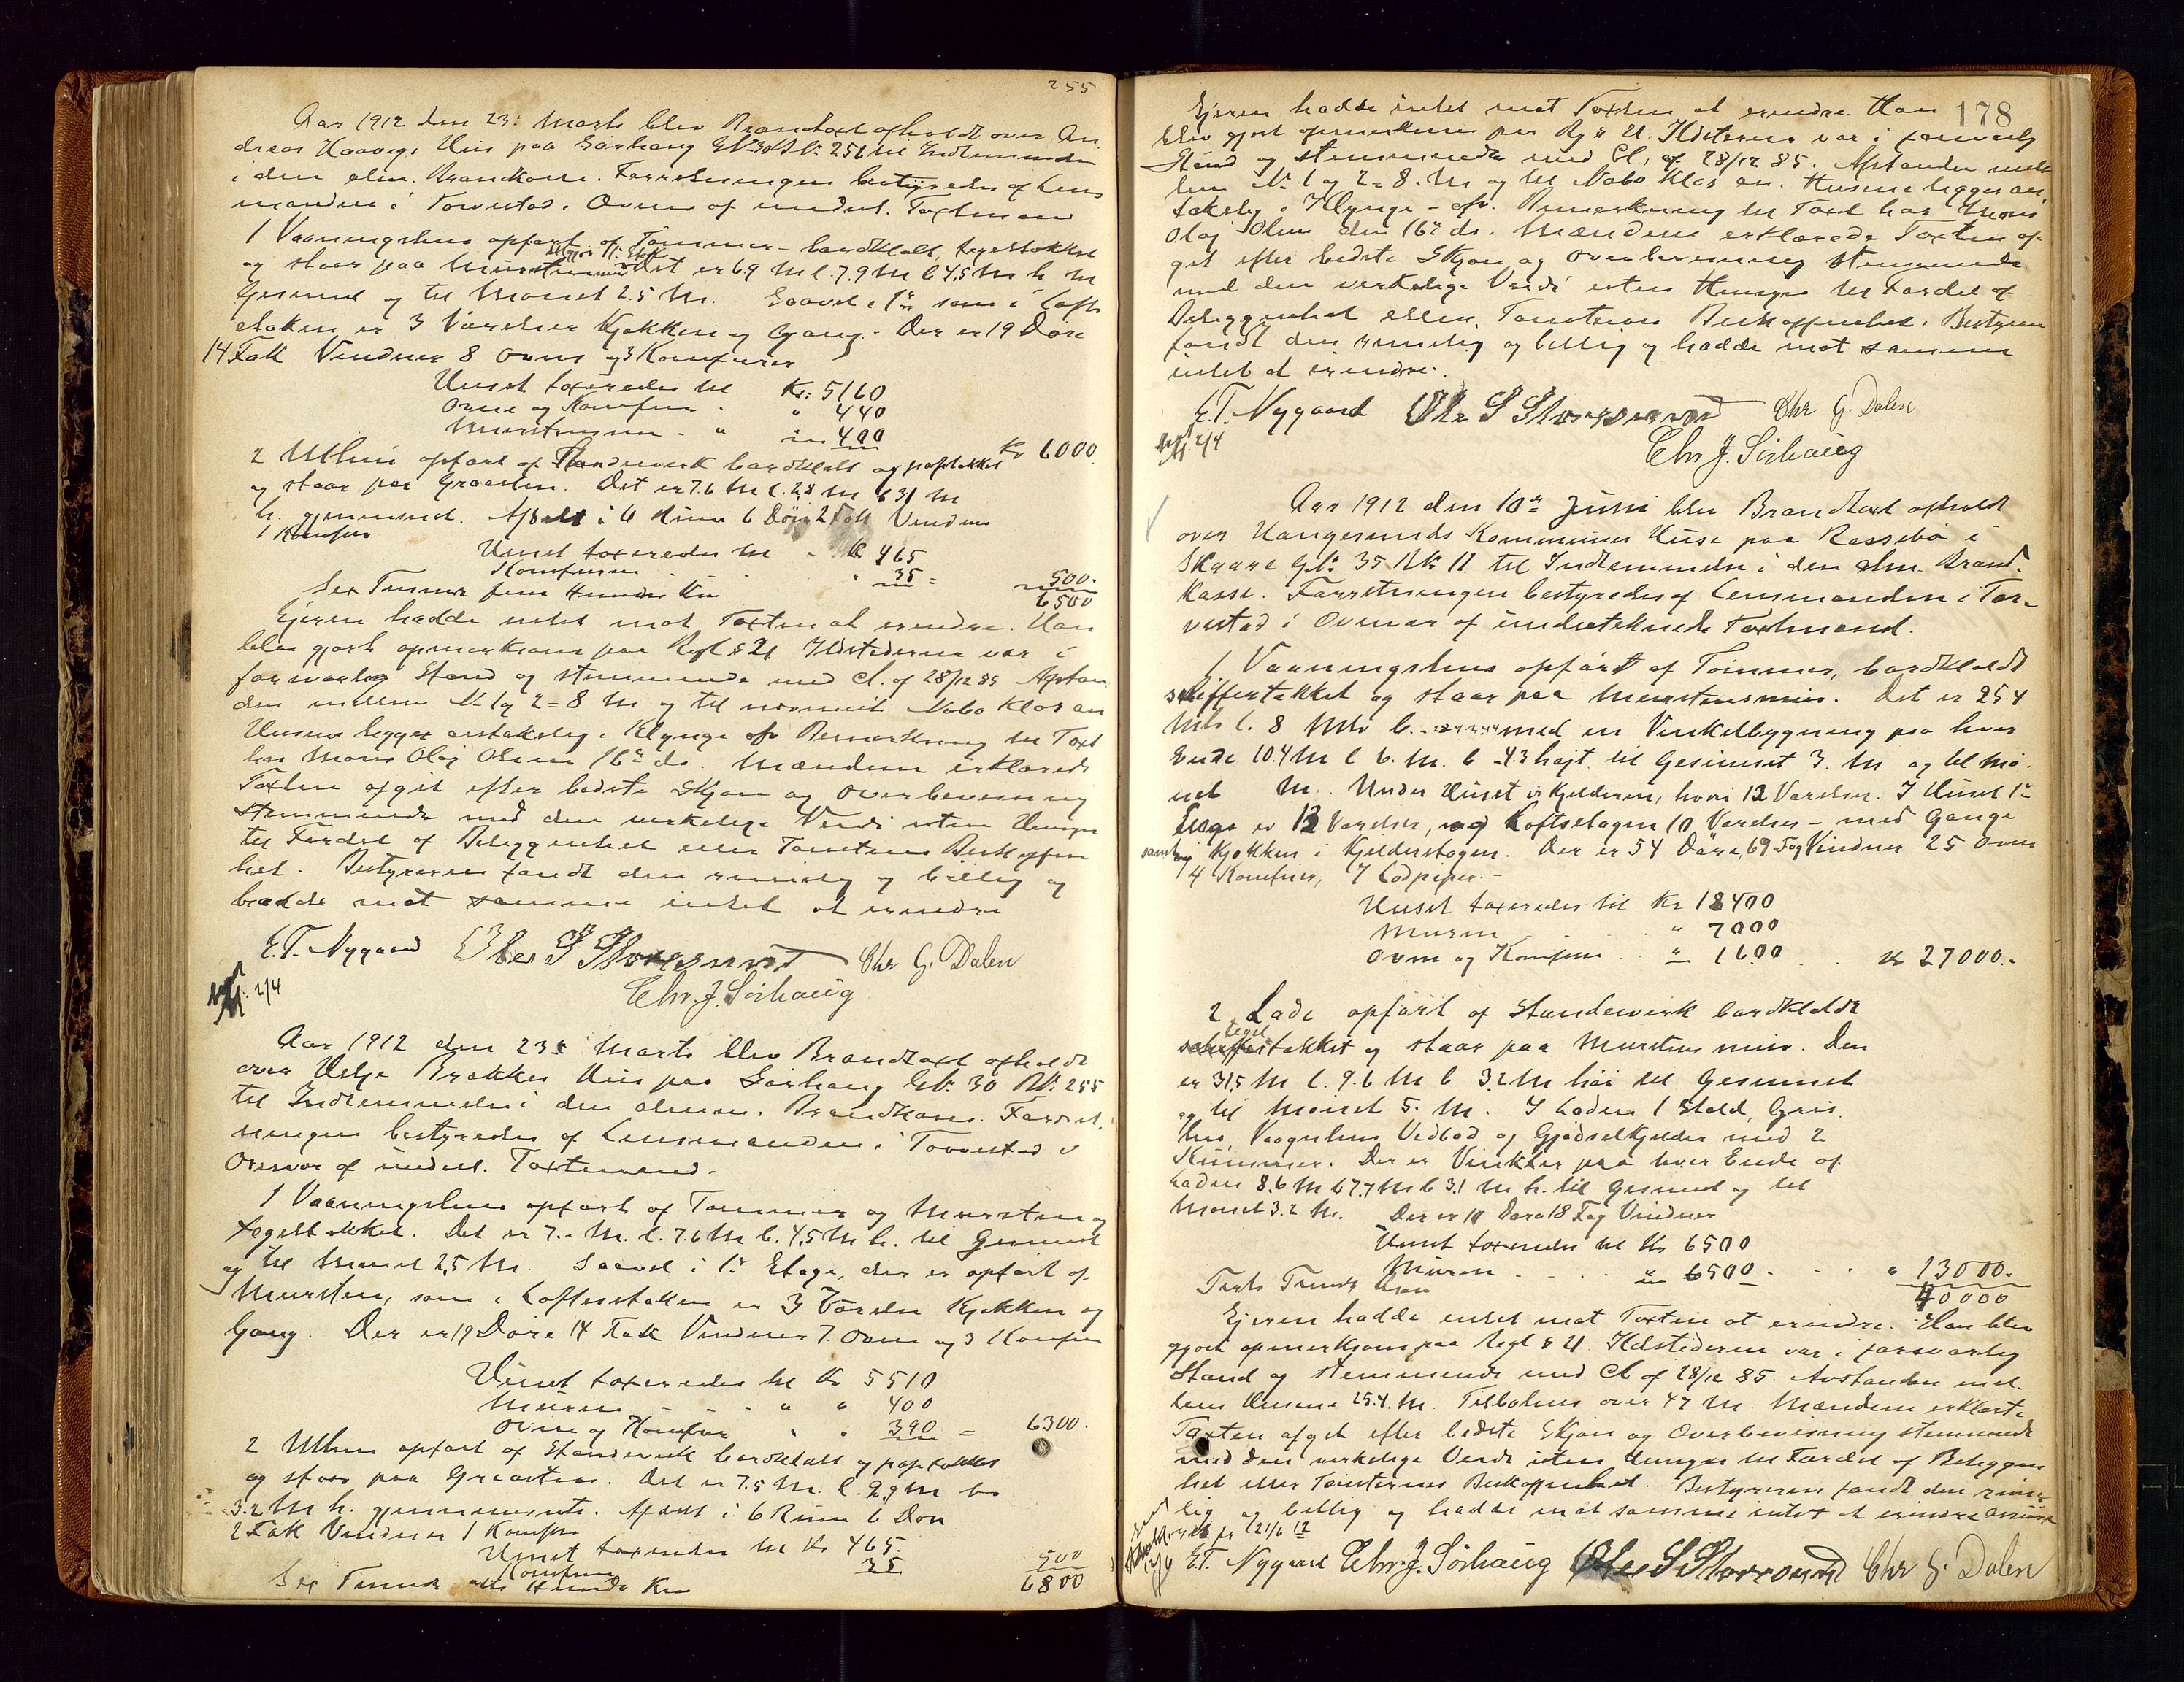 255
Aar 1912 den 23: Marts blev Brandtaxt afholdt over An
dreas Haavigs Hus paa Sørhaug GNo 30 BNo 256 til Indlemmelse
i den alm. Brandkasse. Forretningen bestyredes af Lens
manden i Torvestad. Overv. af undert. Taxtmænd
1 Vaaningshus opført af Tømmer - bordklædt, tegeltækket
og staar paa Murstensmur Det er 6.9 M l. 7.9 M b 4,5 M h til
Gesimset og til Mønet 2.5 M. Saavel i 1ste som i Lofts
etaken er 3 Værelser Kjøkken og Gang. Der er 19 Døre
14 Fak Vinduer 8 Ovne og 3 Komfurer
Huset taxeredes til Kr: 5160
Ovne og Komfur . " 440
Murstensmur - " " 400
Kr 6000.
2 Uthus opført af Standerverk bordklædt og paptækket
og staar paa Graasten. Det er 7.6 M l. 2,8 M b 3,1 M
h. gjennemsnit. Afdelt i 6 Rum 6 Døre 2 Fak Vinduer
1 Komfur
Huset taxeredes til - Kr 465
Komfuren . . " 35 = 500.
Sex Tusinde fem Hundre Kr. 6500
Ejeren hadde intet mot Taxten at erindre. Han
blev gjort opmerksom paa Regl § 21 Ildstederne var i
forsvarlig Stand og stemmende med Cl. af 28/12 85 Afstan
den mellem No 1 og 2 = 8 M og til nærmeste Nabo Klos an
Husene ligger anstaksly i Klynge ofv Bemerkning til Taxt
hos Mons Olaj Olsen 16de ds. Mændene erklærede
Taxten afgit efter bedste Skjøn og Overbevisning
stemmende med den virkelige Verdi uten Hensyn
til Fordel af Beliggenhet eller Tomtens Beskaffen
het. Bestyreren fandt den rimelig og billig og
hadde mot samme intet at erindre
E.T. Nygaard Ole S Storesund Chr G. Dalen
2/4 Chr. J. Sørhaug
Aar 1912 den 23: Marts blev Brandtaxt afholdt
over Helge Brekkes Hus paa Sørhaug GNo 30 BNo 255
til Indlemmelse i den almin. Brandkasse. Forret
ningen bestyredes af Lensmanden i Torvestad i
Overvær af undert. Taxtmænd.
1 Vaaningshus opført af Tømmer og Mursten og
tegeltækket. Det er 7.- M. l. 7.6 M b. 4,5 M h. til Gesimset
og til Mønet 2,5 M. Saavel i 1ste Etage, der er opført af
Mursten, som i Loftsetaken er 3 Værelser Kjøkken og
Gang. Der er 19 Døre 14 Fak Vinduer 7. Ovne og 3 Komfur
Huset taxeredes til Kr 5510
Muren - - - " " 400
Ovne og Komfur " " 390 = 6300.
2 Uthus opført af Standerverk bordklædt og paptækket
og staar paa Graasten. Det er 7.5 M. l. 2,9 M b
3.2 M h. gjennemsnit. Afdelt i 6 Rum 6 Døre
2 Fak Vinduer 1 Komfur
Huset taxeredes til Kr 465.
Komfuren 35 500
Sex Tusinde otte Hundre Kr 6800
178
Ejeren hadde intet mot Taxten at erindre. Han
blev gjort opmerksom paa Rg § 21. Ildstederne var i forsvarlig
Stand og stemmende med Cl. af 28/12 85. Afstanden mel
lem No 1 og 2 = 8. M og til Nabo Klos an. Husene ligger an
taksly i Klynge - ofv. Bemerkning til Taxt hos Mons
Olaj Olsen den 16de ds. Mændene erklærede Taxten af
git efter bedste Skjøn og Overbevisning stemmende
med den virkelige Verdi uten Hensyn til Fordel af
Beliggenhet eller. Tomtens Beskaffenhet. Bestyreren
fandt den rimelig og billig og hadde mot samme
intet at erindre.
E.T. Nygaard Ole S Storesund Chr G. Dalen
2/4 Chr J. Sørhaug
Aar 1912 den 10de Juni blev Brandtaxt afholdt
over Haugesunds Kommunes Huse paa Rossebø i
Skaare GNo 35 BNo 11. til Indlemmelse i den alm. Brand.
kasse. Forretningen bestyredes af Lensmanden i Tor-
vestad i Overvær af undertegnede Taxtmænd.
1 Vaaningshus opført af Tømmer, bordklædt
skiffertækket og staar paa Murstensmur. Det er 25.4
Mtr l. 8 Mtr b. - med en Vinkelbygning paa hver
Ende 10.4 M l 6. M. b - 4.3 højt til Gesimset 3. M og til Mø-
net M. Under Huset er Kjelderen, hvori 12 Værelser. I Huset 1ste
Etage er 12 Værelser, og Loftsetagen 10 Værelser - med Gange
samt Kjøkken i Kjelderetagen. Der er 54 Døre, 69 Fag Vinduer 25 Ovne
4 Komfurer, 7 Lodpiper. -
Huset taxeredes til Kr 18400
Muren . . " 7000
Ovne og Komfurer . . " 1600 . . Kr 27000.-
2 Lade opført af Standerverk bordklædt
tegel
skiffertækket og staar paa Murstens mur. Den
er 31,5 M l. 9.6 M b 3.2 M høi til Gesimset
og til Mønet 5. M. I Laden 1 Stald, Gris
Hus, Vaagnhus, Vedbod og Gjødselkjelder med 2
Kummer. Der er Vinkler paa hver Ende af
Laden 8.6 M l 7.7 M b 3.1 M h. til Gesimset og til
Mønet 3.2 M. Der er 10 Døre 18 Fag Vinduer
Huset taxeredes til Kr 6500
Muren . - . . " 6500 - . . " 13000.
40000
Ejeren hadde intet mot Taxten at erindre. Han blev
gjort opmerksom paa Regl § 21 Ildstederne var i forsvarlig
Stand og stemmende med Cl af 28/12 85. Avstanden mel-
lem Husene 25.4. M. Til over 47 M. Mændene erklærte
Taxten afgit efter bedste Skjøn og Overbevisning stemmende
med den virkelige Verdi uten Hensyn til Fordel af Beliggen
het eller Tomternes Beskaffenhet. Bestyreren fandt den rime-
lig og billig og hadde mot samme intet at erindre
E.T. Nygaard Chr. J. Sørhaug Ole S Storesund Chr G. Dalen